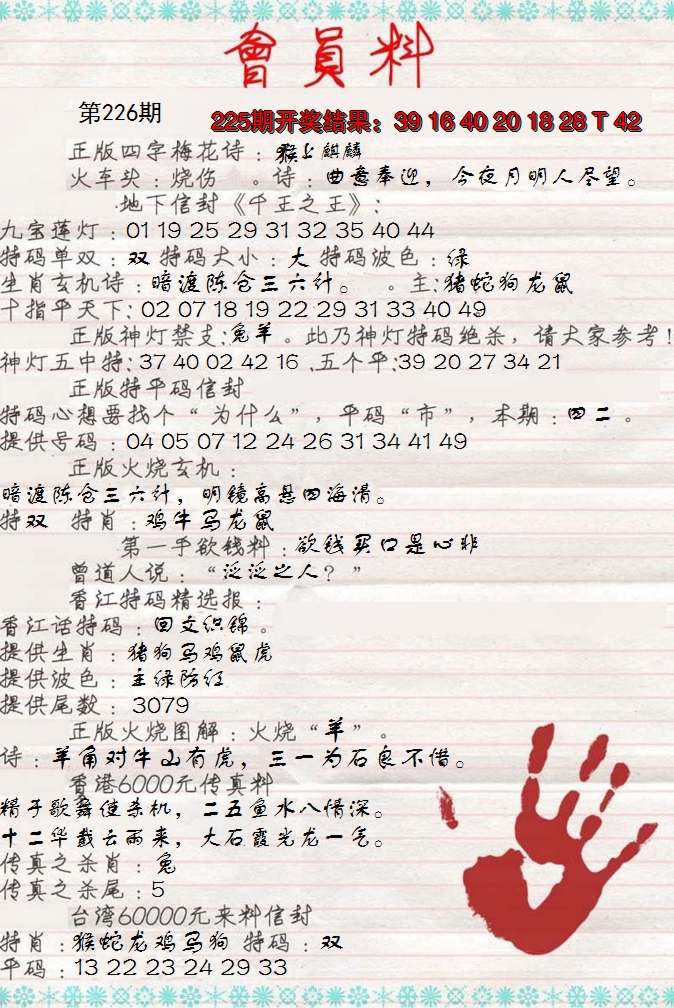 會員料
第226期
225期开奖结果：39 16 40 20 18 28 T 42
正版四字梅花诗：猴上麒麟
火车头：烧伤 。诗：曲意奉迎，今夜月明人尽望。
地下信封《千王之王》：
九宝莲灯：01 19 25 29 31 32 35 40 44
特码单双：双 特码大小：大 特码波色：绿
生肖玄机诗：暗渡陈仓三六计。 。主:猪蛇狗龙鼠
十指平天下: 02 07 18 19 22 29 31 33 40 49
正版神灯禁支:兔羊。此乃神灯特码绝杀，请大家参考!
神灯五中特: 37 40 02 42 16 .五个平:39 20 27 34 21
正版特平码信封
特码心想要找个“为什么”，平码“市”，本期：四二。
提供号码：04 05 07 12 24 26 31 34 41 49
正版火烧玄机：
暗渡陈仓三六计，明镜高悬四海清。
特双 特肖：鸡牛马龙鼠
第一手欲钱料：欲钱买口是心非
曾道人说：“泛泛之人？”
香江特码精选报：
香江话特码：回文织锦。
提供生肖：猪狗马鸡鼠虎
提供波色：主绿防红
提供尾数：3079
正版火烧图解：火烧“羊”。
诗：羊角对牛山有虎，三一为石良不惜。
香港6000元传真料
精于歌舞使杀机，二五鱼水八情深。
十二华截云雨来，大石霞光龙一气。
传真之杀肖：兔
传真之杀尾：5
台湾60000元来料信封
特肖：猴蛇龙鸡马狗 特码：双
平码：13 22 23 24 29 33